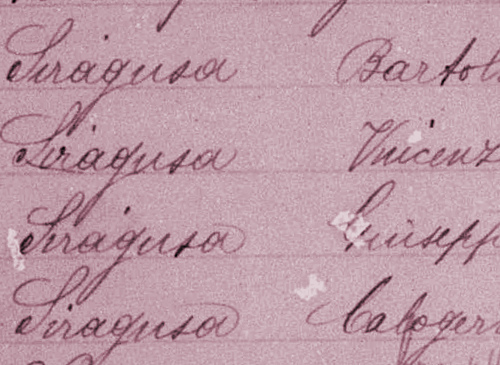 Siragusa Bartol
Siragusa Vincenz
Siragusa Giusepp
Siragusa Caloger